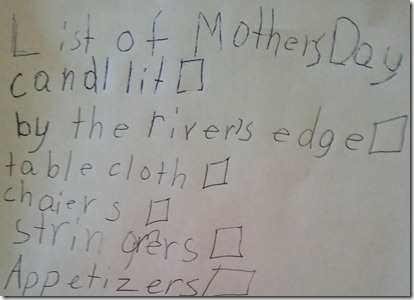 List of Mothers Day
candl lit
by the river's edge
table cloth
chaiers
stringers
Appetizers